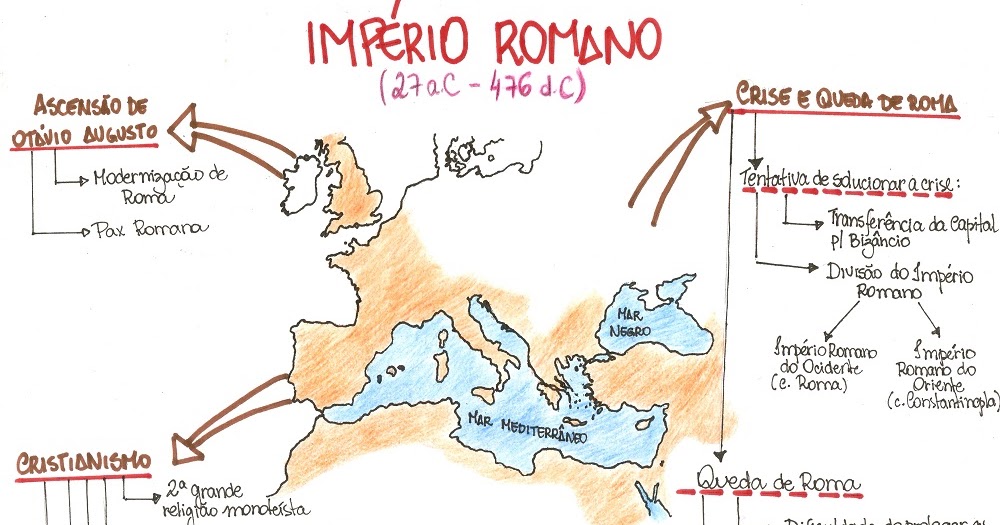 IMPÉRIO ROMANO
(27 a.C - 476 d.C)
ASCENSÃO DE
OTÁVIO AUGUSTO
Modernização de
Roma
Pax Romana
CRISE E QUEDA DE ROMA
Tentativa de solucionar a crise:
Transferência da Capital
p/ Bizâncio
Divisão do Império
Romano
Império Romano
do Ocidente
(c. Roma)
Império
Romano do
Oriente
(c. Constantinopla)
MAR
NEGRO
MAR MEDITERRÂNEO
CRISTIANISMO
2ª grande
religião monoteísta
Queda de Roma